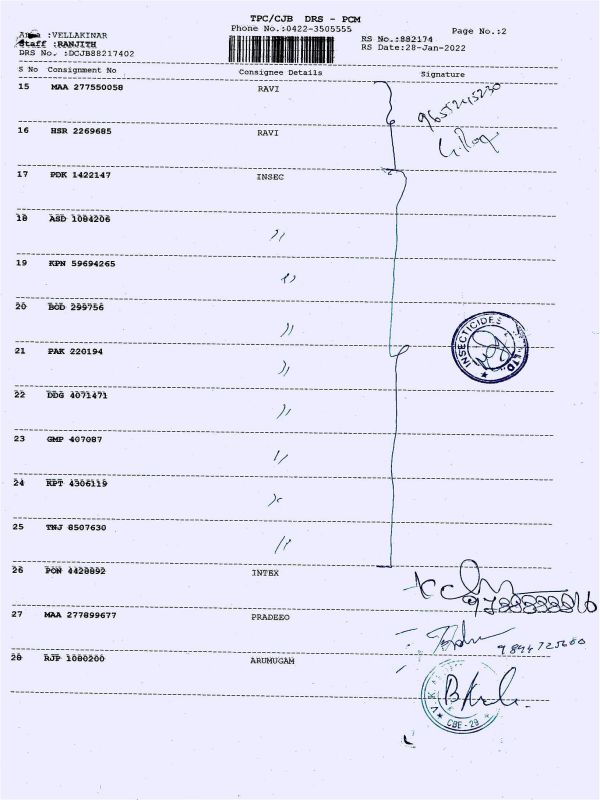 TPC/CJB DRS - PCM
Phone No.:0422-3505555
Page No.:2
Area :VELLAKINAR
Staff :RANJITH
DRS No. :DCJB88217402
RS No.:882174
RS Date:28-Jan-2022
S No Consignment No Consignee Details Signature
15 MAA 277550058 RAVI
16 HSR 2269685 RAVI
17 PDK 1422147 INSEC
18 ASD 1084206 〃
19 KPN 59694265 〃
20 BOD 299756 〃
21 PAK 220194 〃
22 DDG 4071471 〃
23 GMP 407087 〃
24 KPT 4306119 〃
25 TNJ 8507630 〃
INSECTICIDES LTD
26 PON 4428892 INTEX
27 MAA 277899677 PRADEEO
9894725680
28 RJP 1080200 ARUMUGAM
CBE-29